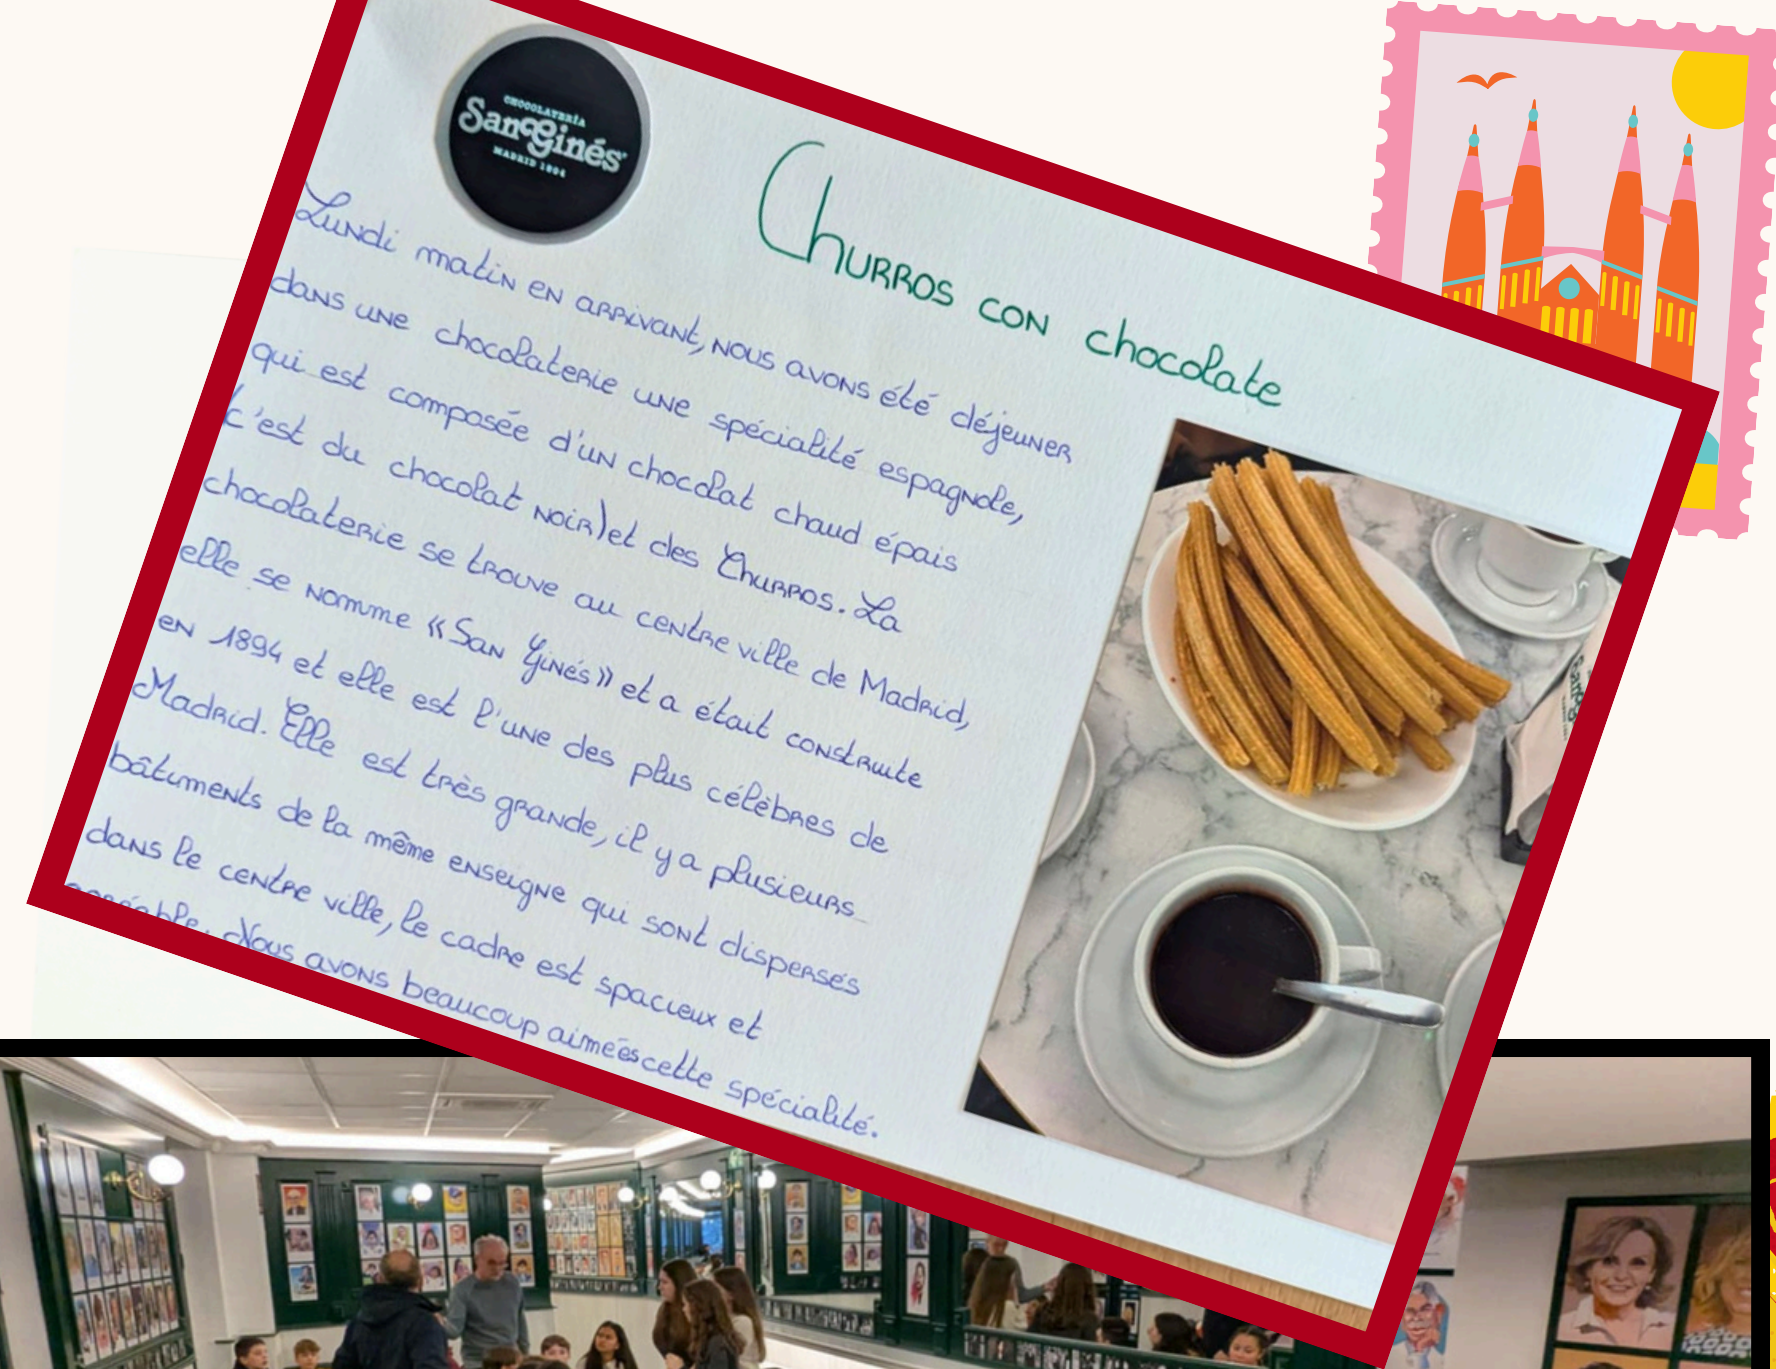 CHOCOLATERÍA
San Ginés
MADRID 1894
Churros con chocolate
Lundi matin en arrivant, nous avons été déjeuner
dans une chocolaterie une spécialité espagnole,
qui est composée d'un chocolat chaud épais
(c'est du chocolat noir) et des Churros. La
chocolaterie se trouve au centre ville de Madrid,
elle se nomme «San Ginés» et a était construite
en 1894 et elle est l'une des plus célèbres de
Madrid. Elle est très grande, il y a plusieurs
bâtiments de la même enseigne qui sont dispersés
dans le centre ville, le cadre est spacieux et
Nous avons beaucoup aimées cette spécialité.